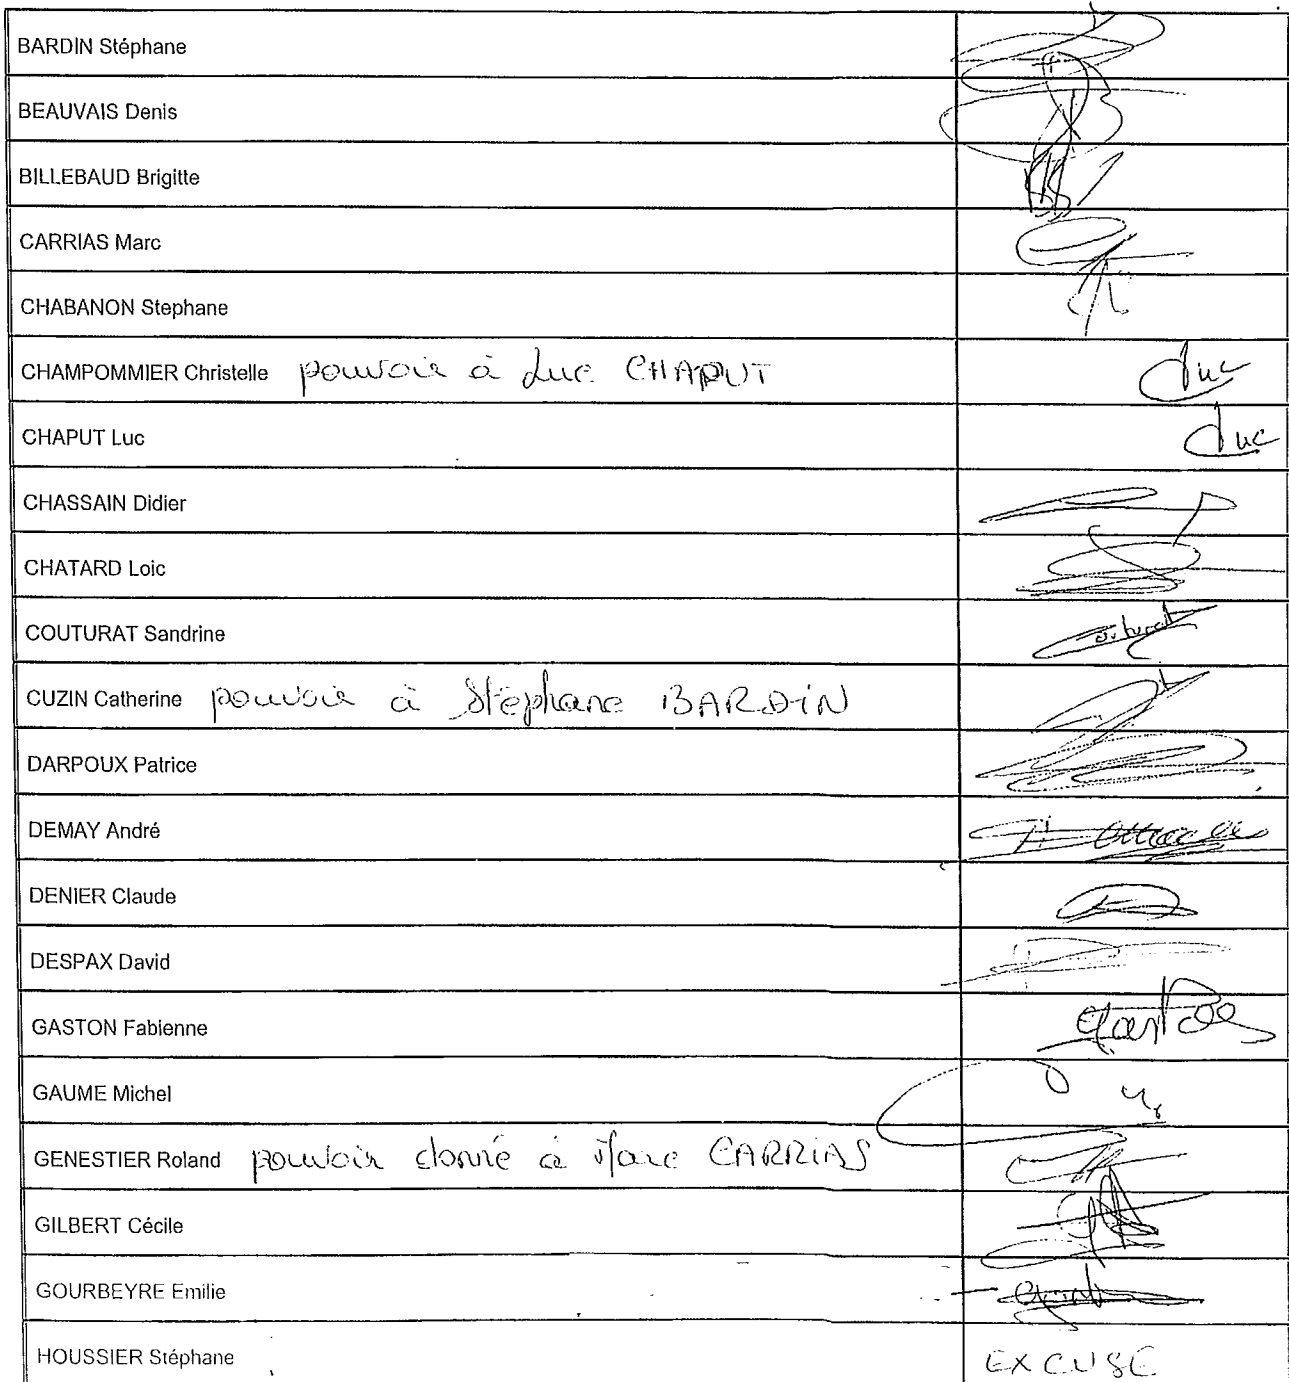 BARDIN Stéphane
BEAUVAIS Denis
BILLEBAUD Brigitte
CARRIAS Marc
CHABANON Stephane
CHAMPOMMIER Christelle pouvoir à Luc CHAPUT Luc
CHAPUT Luc Luc
CHASSAIN Didier
CHATARD Loic
COUTURAT Sandrine
CUZIN Catherine pouvoir à Stéphane BARDIN
DARPOUX Patrice
DEMAY André
DENIER Claude
DESPAX David
GASTON Fabienne
GAUME Michel
GENESTIER Roland pouvoir donné à Marc CARRIAS
GILBERT Cécile
GOURBEYRE Emilie
HOUSSIER Stéphane EXCUSE